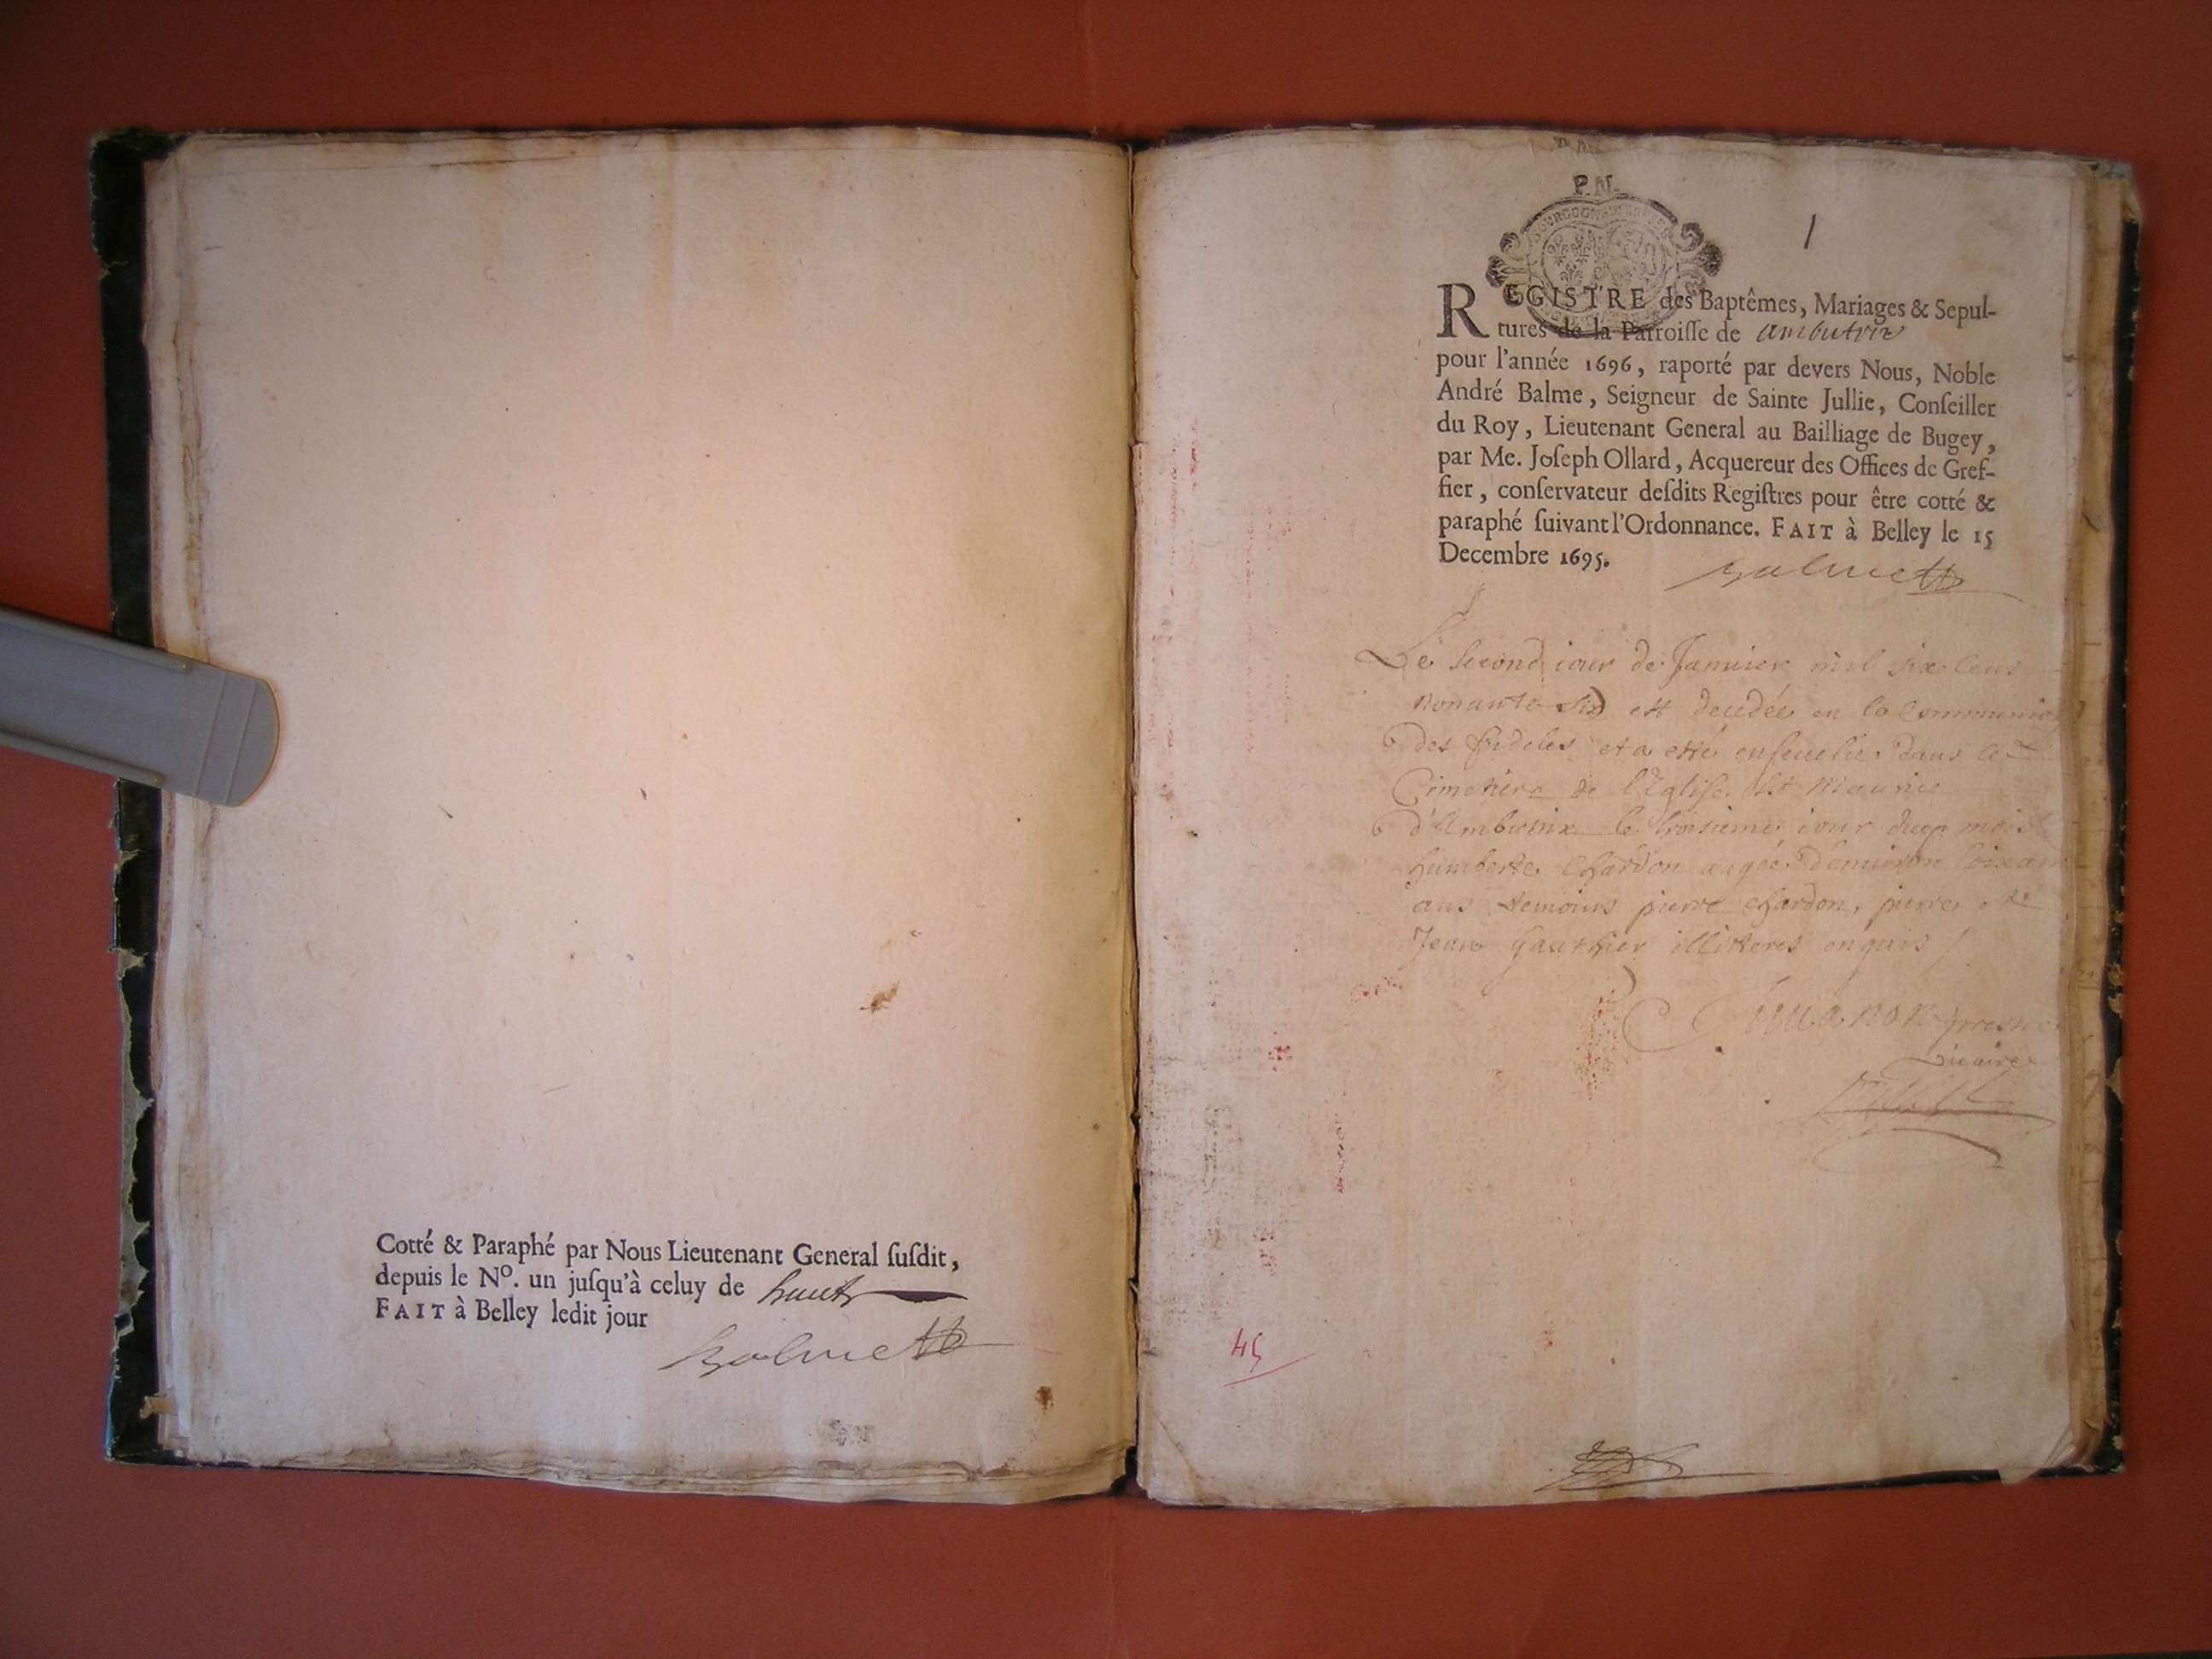 Cotté & Paraphé par Nous Lieutenant General ſuſdit,
depuis le Nº. un juſqu'à celuy de huict
FAIT à Belley ledit jour
Balme
P.M.
1
REGISTRE des Baptêmes, Mariages & Sepul-
tures de la Parroiſſe de ambutrix
pour l'année 1696, raporté par devers Nous, Noble
André Balme, Seigneur de Sainte Jullie, Conſeiller
du Roy, Lieutenant General au Bailliage de Bugey,
par Me. Joſeph Ollard, Acquereur des Offices de Gref-
fier, conſervateur deſdits Regiſtres pour être cotté &
paraphé ſuivant l'Ordonnance. FAIT à Belley le 15
Decembre 1695.
Balme
Le second iour de Januier mil six cens
nonante six est decedée en la Communion
des fideles et a esté enseuelie dans le
Cimetiere de l'Eglise St Maurice
d'Ambutrix le troisieme iour dud mois
humberte Chardon aagée d'enuiron
ans temoins pierre chardon, pierre et
Jean Gauthier illiteres enquis
vicaire
45